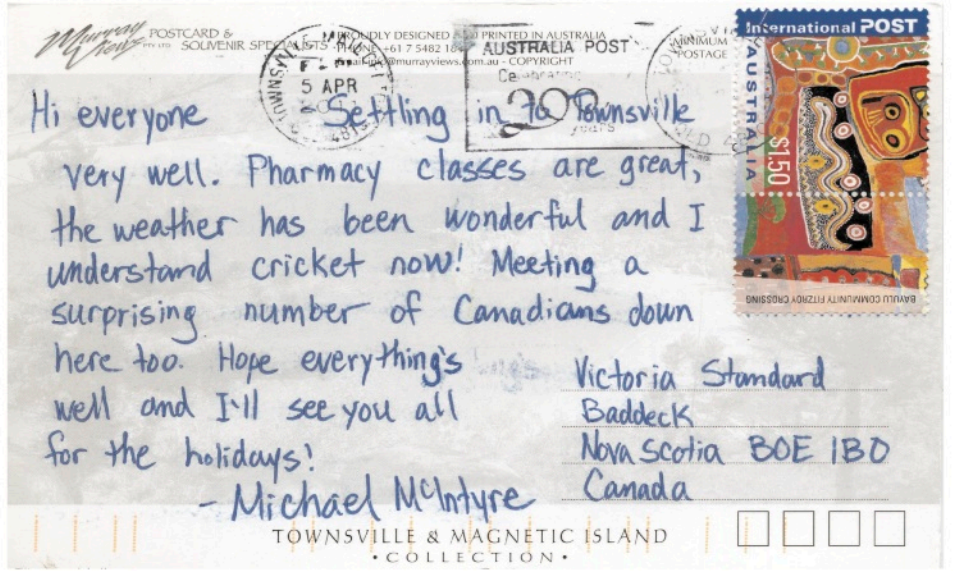 Murray Views PTY LTD POSTCARD & SOUVENIR SPECIALISTS
PROUDLY DESIGNED AND PRINTED IN AUSTRALIA
PHONE +61 7 5482 18
@murrayviews.com.au - COPYRIGHT
MINIMUM
POSTAGE
TOWNSVILLE
5 APR
4810
AUSTRALIA POST
Celebrating
200
years
International POST
AUSTRALIA
$1.50
BAYULU COMMUNITY FITZROY CROSSING
Hi everyone Settling in to Townsville
very well. Pharmacy classes are great,
the weather has been wonderful and I
understand cricket now! Meeting a
surprising number of Canadians down
here too. Hope everything's
well and I'll see you all
for the holidays!
- Michael McIntyre
Victoria Standard
Baddeck
Nova Scotia BOE 1BO
Canada
TOWNSVILLE & MAGNETIC ISLAND
• COLLECTION •